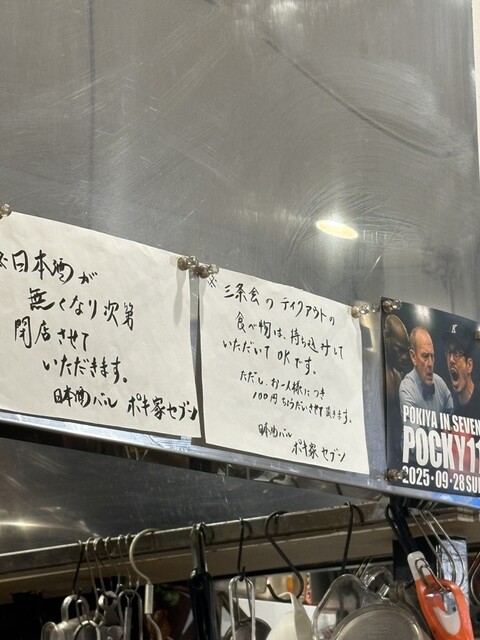 ※日本酒が
無くなり次第
閉店させて
いただきます。
日本酒バル ポキ家セブン
※三条会のテイクアウトの
食べ物は、持ち込みして
いただいてOKです。
ただし、お一人様につき
100円ちょうだいさせて頂きます。
日本酒バル
ポキ家セブン
POKIYA IN SEVEN
POCKY11
2025・09・28 SU